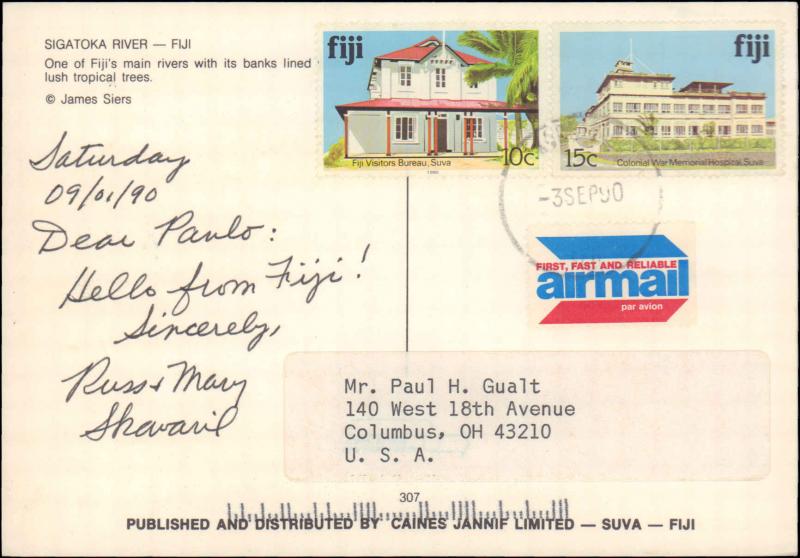 SIGATOKA RIVER — FIJI
One of Fiji's main rivers with its banks lined
lush tropical trees.
© James Siers
fiji
Fiji Visitors Bureau, Suva
10c
1990
fiji
15c
Colonial War Memorial Hospital, Suva
-3SEP90
FIRST, FAST AND RELIABLE
airmail
par avion
Saturday
09/01/90
Dear Paulo:
Hello from Fiji!
Sincerely,
Russ & Mary
Skavaril
Mr. Paul H. Gualt
140 West 18th Avenue
Columbus, OH 43210
U. S. A.
307
PUBLISHED AND DISTRIBUTED BY CAINES JANNIF LIMITED — SUVA — FIJI